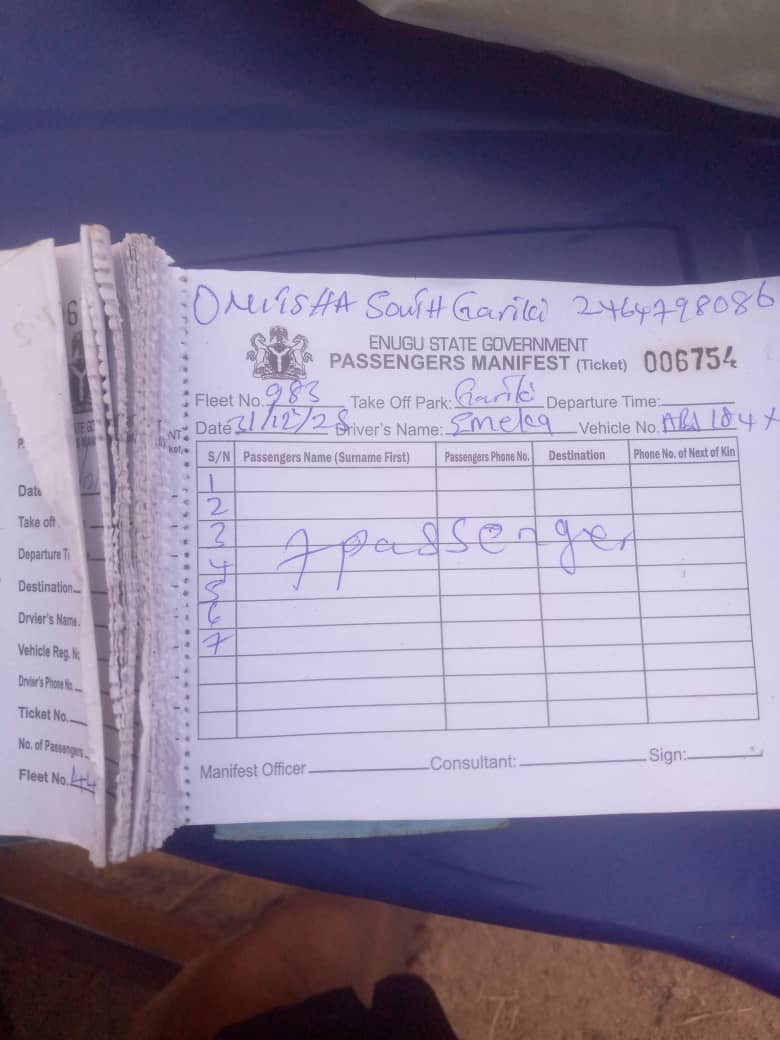 ONITSHA South Gariki 2464798086
ENUGU STATE GOVERNMENT
PASSENGERS MANIFEST (Ticket) 006754
Fleet No. 983 Take Off Park: Gariki Departure Time:
Date 31/12/25 Driver's Name: Emeka Vehicle No.
S/N Passengers Name (Surname First) Passengers Phone No. Destination Phone No. of Next of Kin
1
2
3
4
5
6
7
7 passenger
Manifest Officer Consultant: Sign:
Date
Take off
Departure Ti
Destination
Drvier's Name
Vehicle Reg. No
Drvier's Phone No.
Ticket No.
No. of Passengers
Fleet No. 44